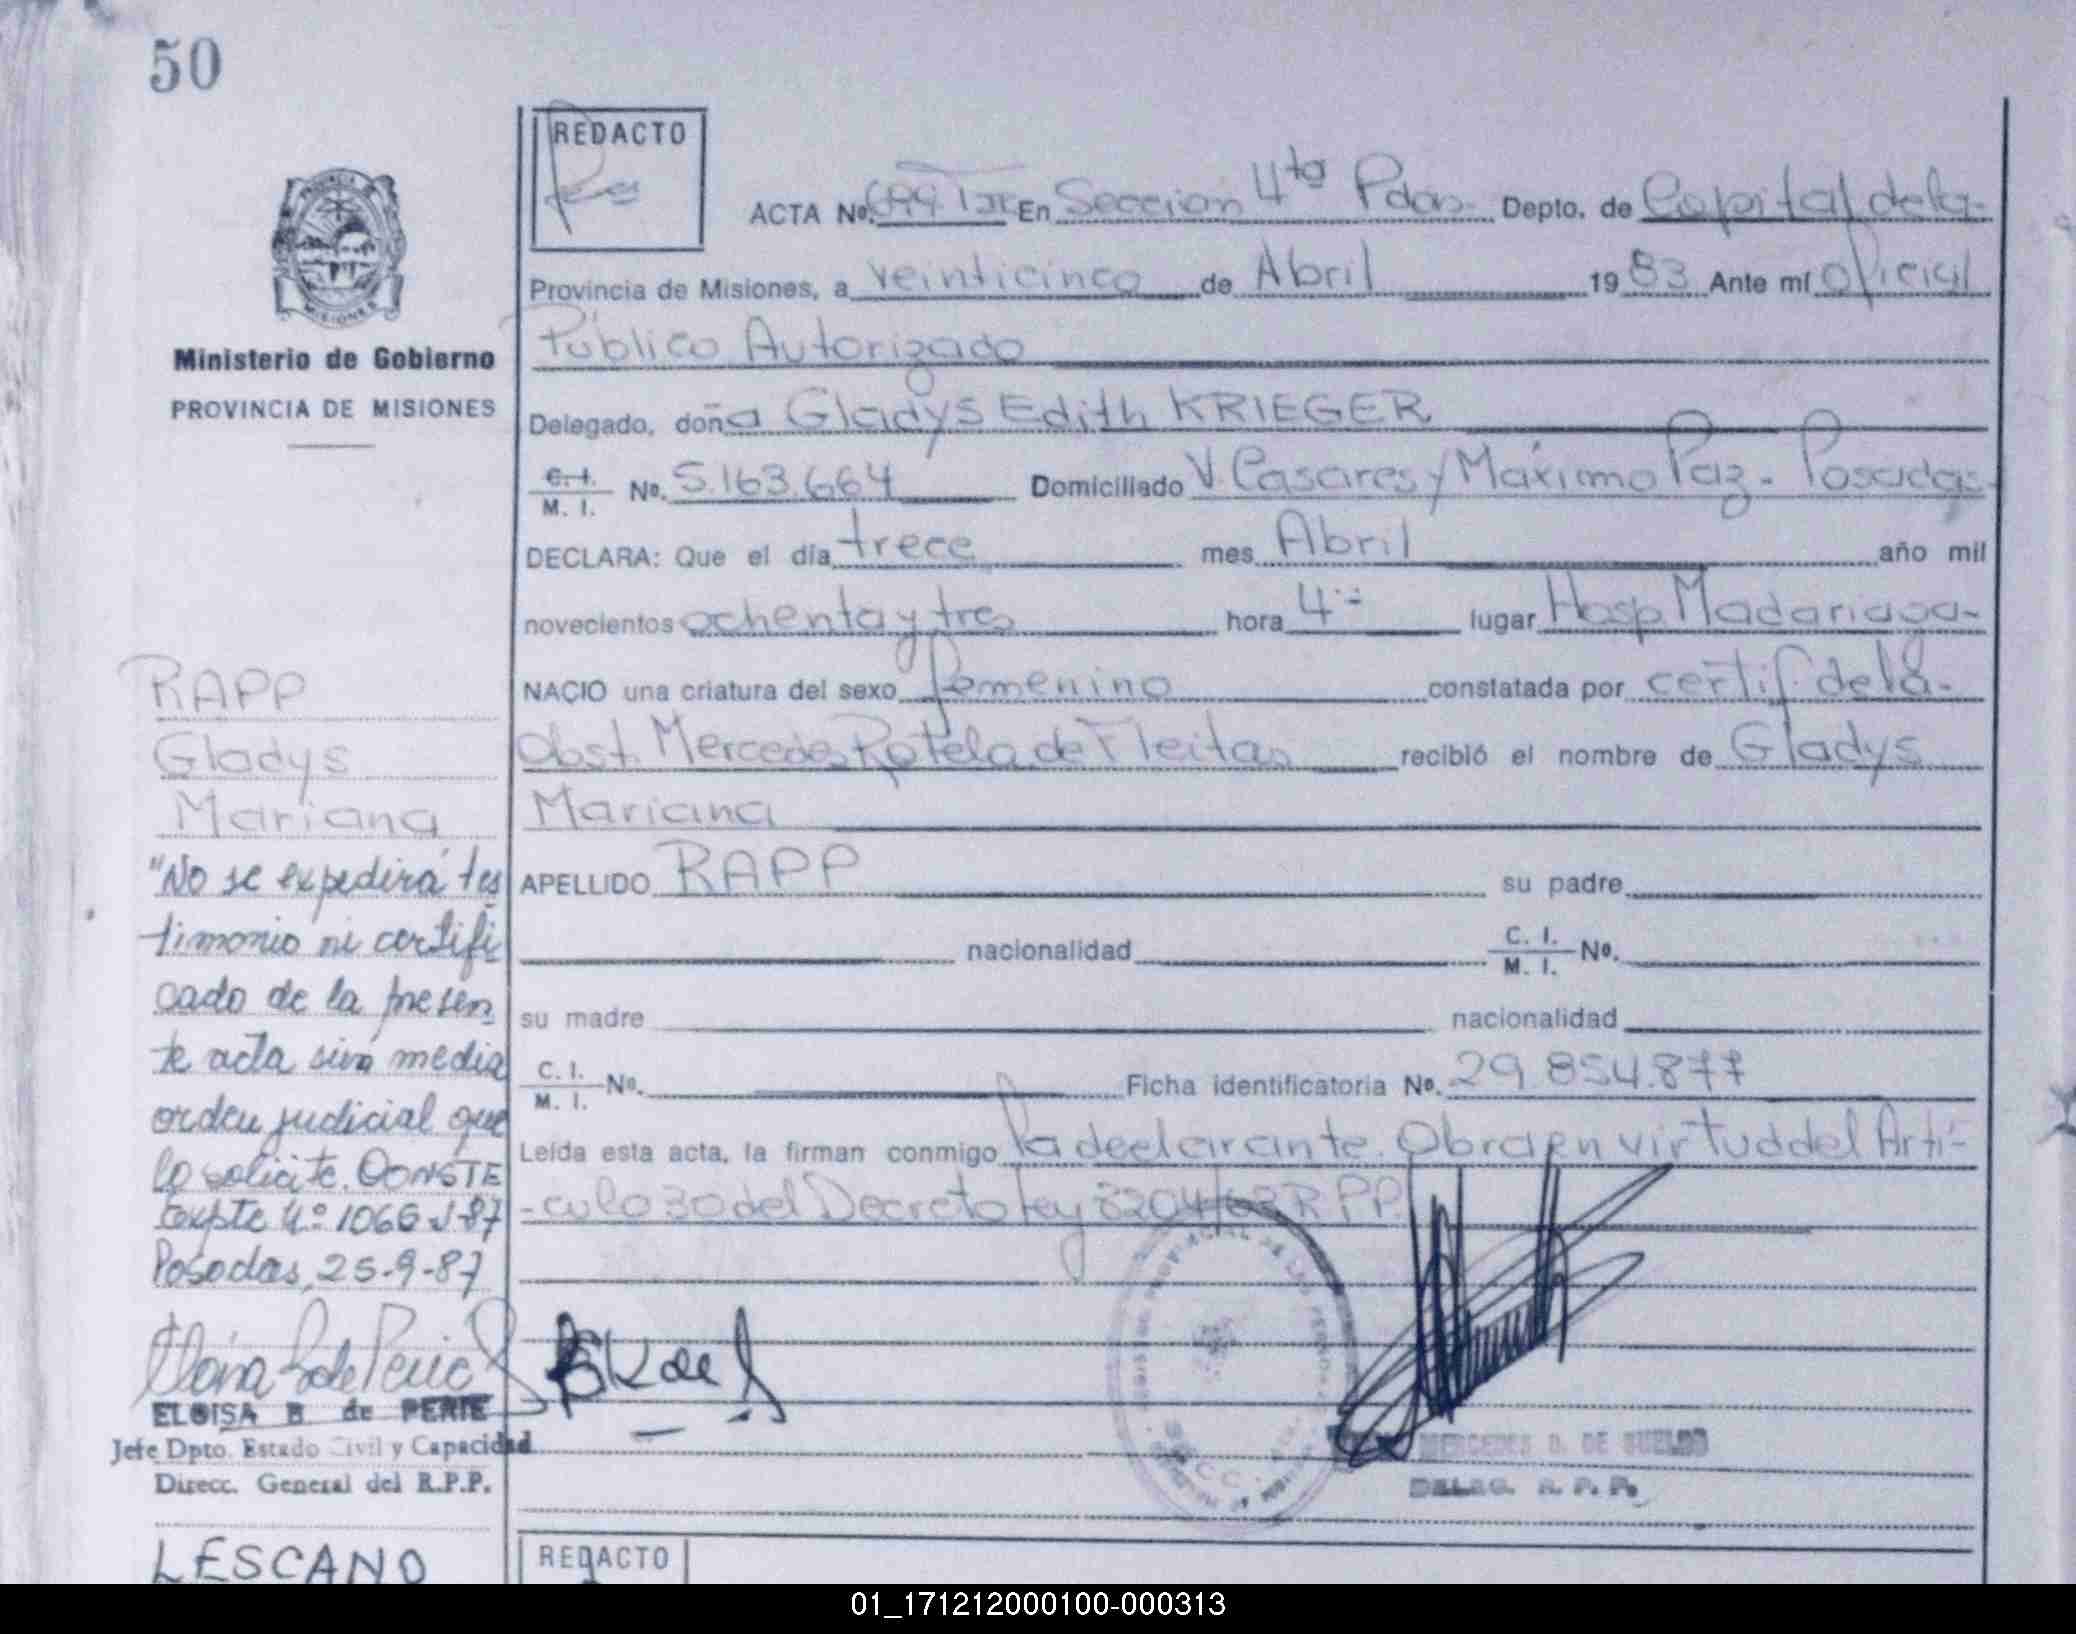 50
REDACTO
ACTA Nº. 699 En Sección 4ta Pdas. Depto. de Capital dela
Provincia de Misiones, a veinticinco de Abril 1983 Ante mí oficial
Público Autorizado
Ministerio de Gobierno
PROVINCIA DE MISIONES
Delegado, doña Gladys Edith KRIEGER
C. I.
M. I. Nº. 5.163.664 Domiciliado V. Casares y Máximo Paz - Posadas
DECLARA: Que el día trece mes Abril año mil
novecientos ochenta y tres hora 4 lugar Hosp Madariaga-
NACIO una criatura del sexo femenino constatada por certif. de la
Obst. Mercedes Rotela de Fleitas recibió el nombre de Gladys
Mariana
APELLIDO RAPP su padre
nacionalidad C. I. M. I. Nº.
su madre nacionalidad
C. I. M. I. Nº. Ficha identificatoria Nº. 29.854.877
Leída esta acta, la firman conmigo la declarante. Obra en virtud del Artí-
-culo 30 del Decreto ley 8204/63 R P P.
RAPP
Gladys
Mariana
"No se expedirá tes
timonio ni certifi
cado de la presen
te acta sino media
orden judicial que
lo solicite. CONSTE
Expte Nº 1066 J-87
Posadas, 25-9-87
ELOISA B. de PERIE
Jefe Dpto. Estado Civil y Capacidad
Direcc. General del R.P.P.
MERCEDES D. DE SUELDO
DELEG. R. P. P.
LESCANO
REDACTO
01_171212000100-000313